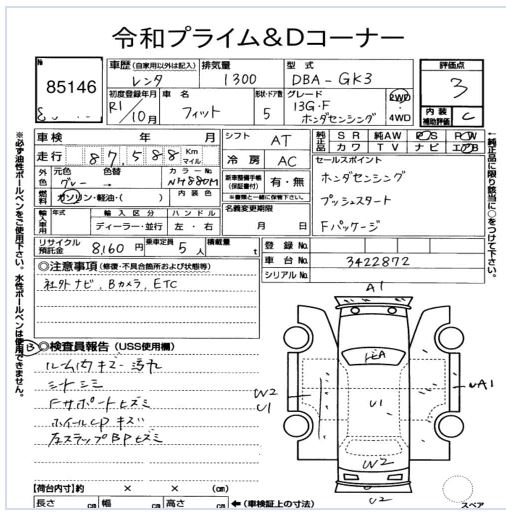 令和プライム&Dコーナー
№ 85146
車歴 (自家用以外は記入) レンタ
排気量 1300
型式 DBA-GK3
評価点 3
初度登録年月 R1/10月
車名 フィット
形状・ドア数 5
グレード 13G・F ホンダセンシング
2WD
4WD
内装補助評価 C
車検 年 月
走行 87,588 Km マイル
シフト AT
純正品 SR 純AW PS PW
カワ TV ナビ エアB
外色 元色 グレー → 色替
カラーNo. NH880M
冷房 AC
セールスポイント
ホンダセンシング
プッシュスタート
Fパッケージ
燃料 ガソリン・軽油・( ) 内装色
新車整備手帳 (保証書付) 有・無
※書類と一緒に保管下さい。
輸入車用 年式 輸入区分 ハンドル
ディーラー・並行 左・右
名義変更期限 月 日
リサイクル預託金 8,160円
乗車定員 5人
積載量 t
登録No.
車台No. 3422872
シリアルNo.
◎注意事項 (修復・不具合箇所および状態等)
社外ナビ、Bカメラ、ETC
◎検査員報告 (USS使用欄)
ルーム内キズ・汚れ
シートシミ
Fサポートヒズミ
ホイールCPキズ
左ステップBPヒズミ
A1
W2
U1
U1
UA1
W2
U2
スペア
【荷台内寸】約 × × (cm)
長さ cm 幅 cm 高さ cm ←(車検証上の寸法)
※必ず油性ボールペンをご使用下さい。水性ボールペンは使用できません。
↑純正品に限り該当に○をつけて下さい。